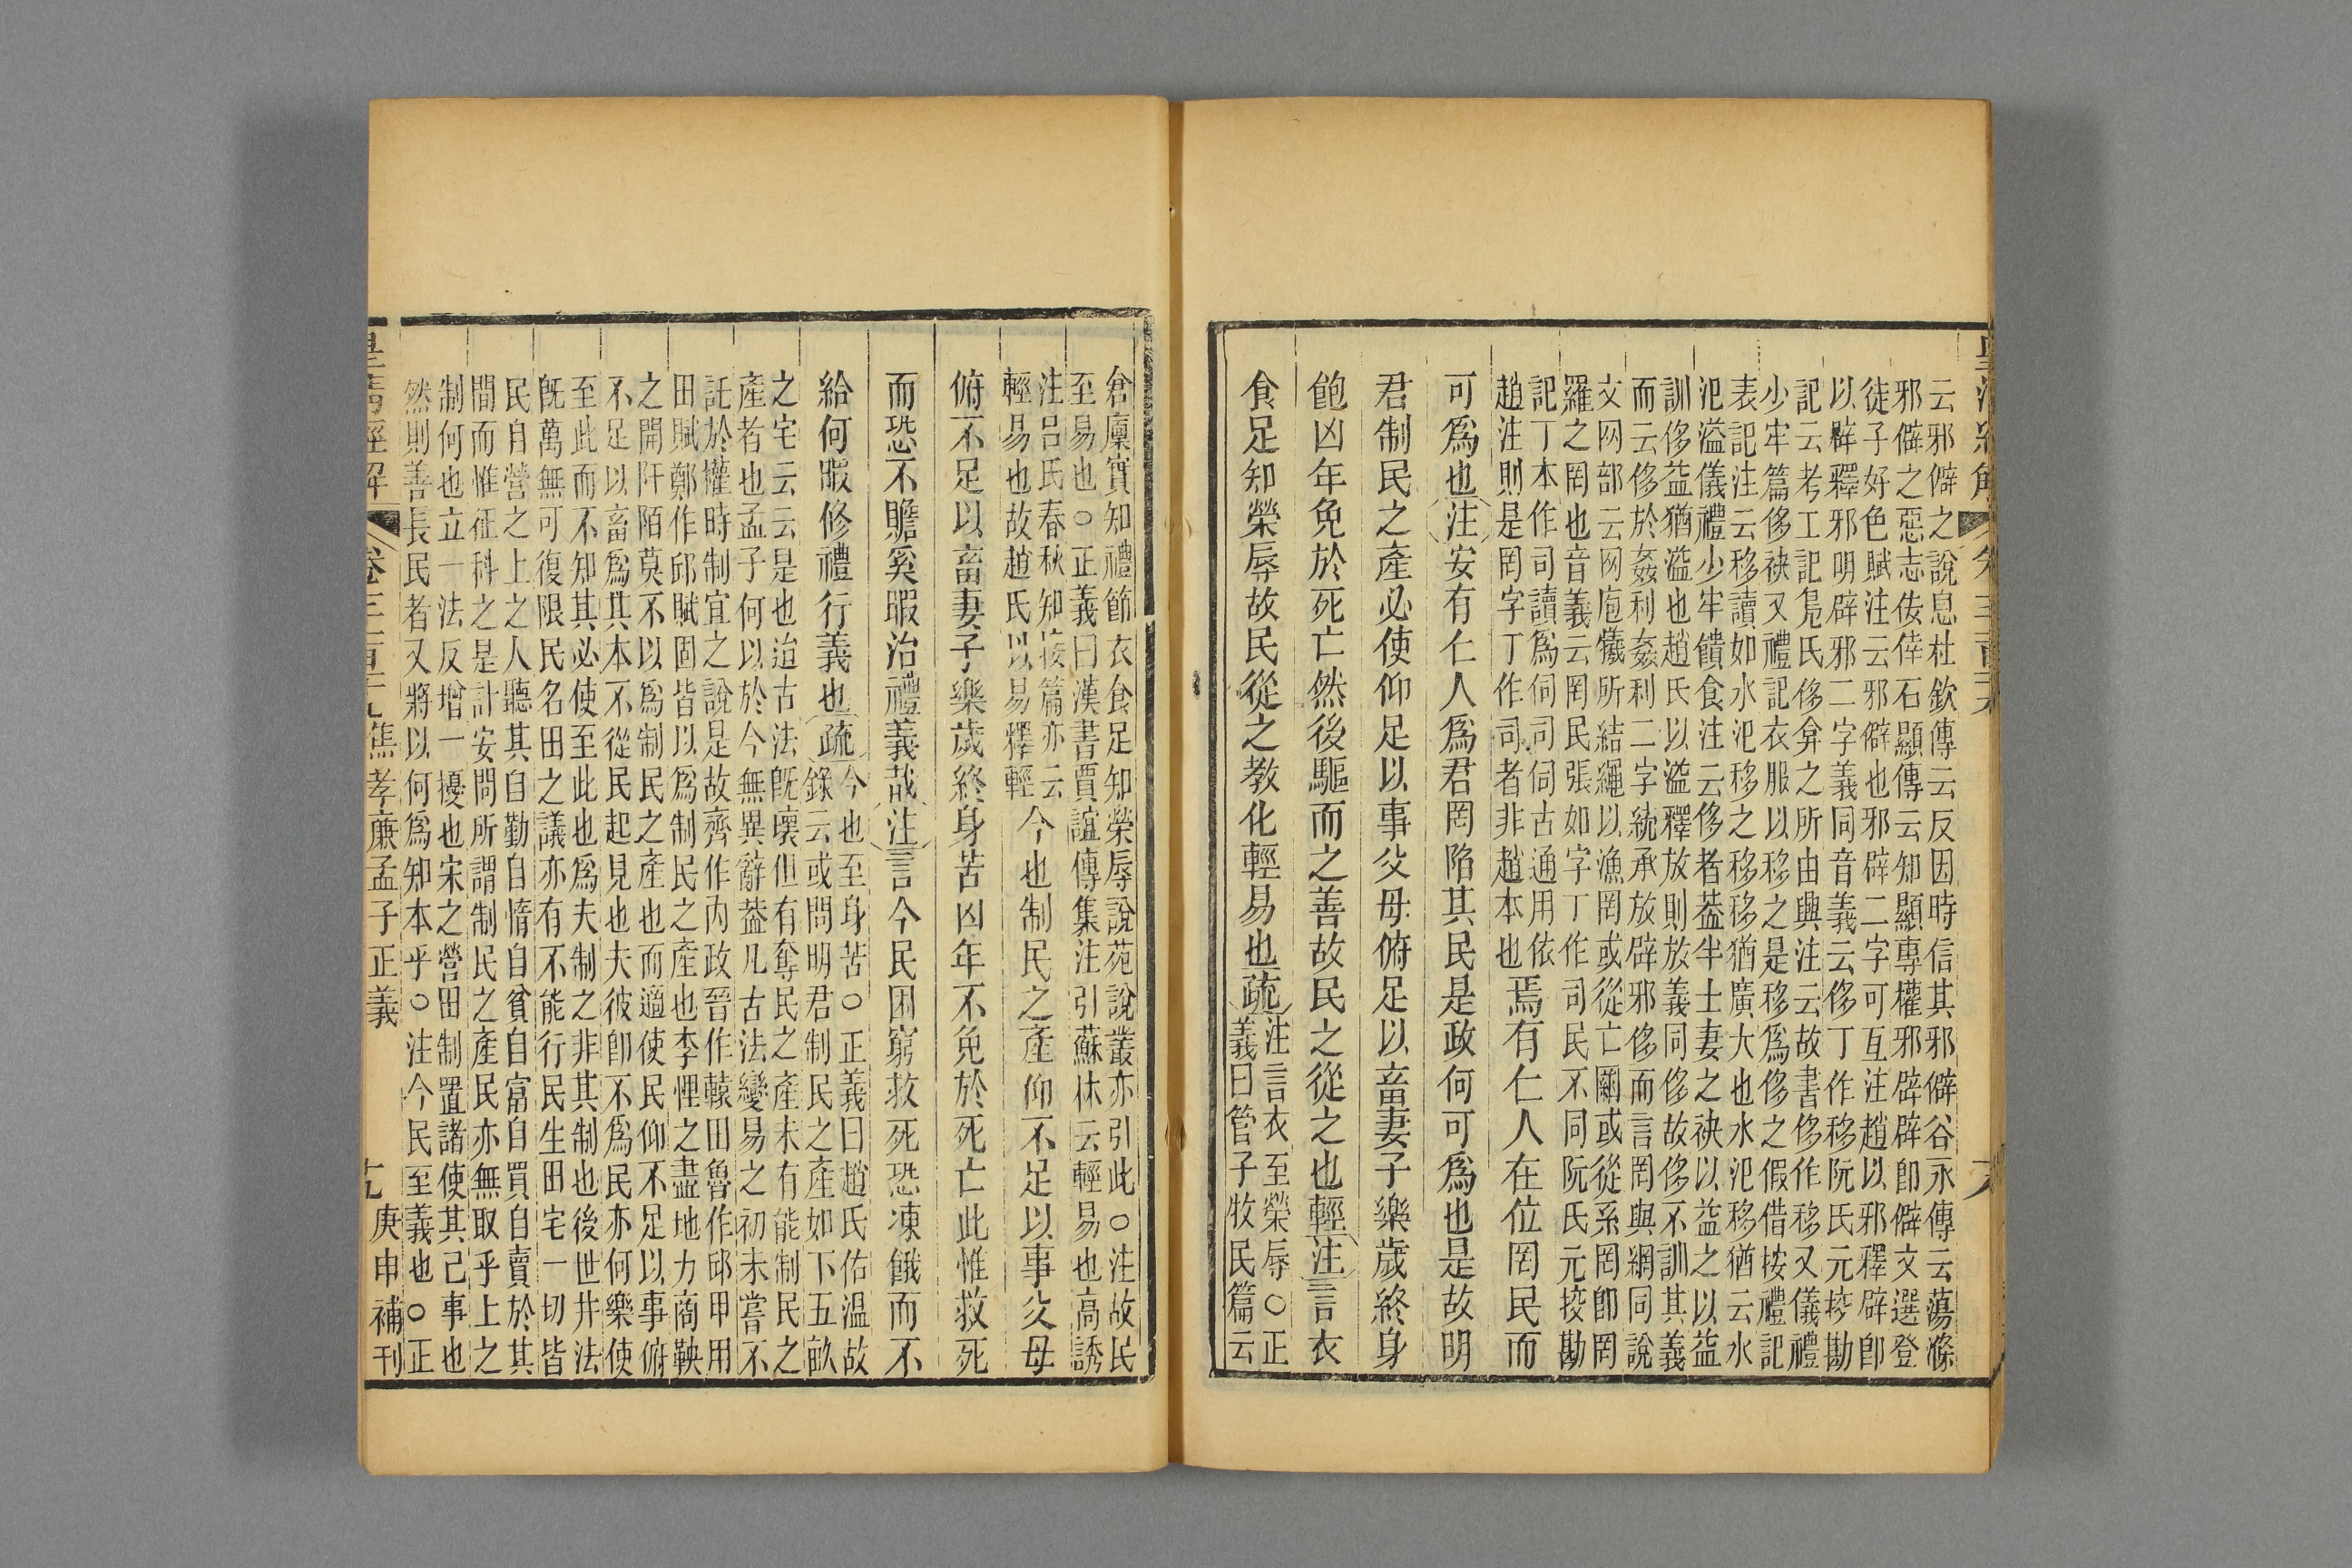 云邪僻之說息杜欽傳云反因時信其邪僻谷永傳云蕩滌
邪僻之惡志佞倖石顯傳云知顯專權邪辟辟卽僻文選登
徒子好色賦注云邪僻也邪辟二字可互注趙以邪釋辟卽
以辟釋邪明辟邪二字義同音義云侈丁作移阮氏元挍勘
記云考工記鳧氏侈弇之所由興注云故書侈作移又儀禮
少牢篇侈袂又禮記衣服以移之是移爲侈之假借按禮記
表記注云移讀如水汜移之移移猶廣大也水汜移猶云水
汜溢儀禮少牢饋食注云侈者葢半士妻之袂以益之以益
訓侈益猶溢也趙氏以溢釋放則放義同侈故侈不訓其義
而云侈於姦利姦利二字統承放辟邪侈而言罔與網同說
文网部云网庖犧所結繩以漁罔或從亡或從系罔卽罔
羅之罔也音義云罔民張如字丁作司民不同阮氏元挍勘
記丁本作司讀爲伺司伺古通用依
趙注則是罔字丁作司者非趙本也
焉有仁人在位罔民而
可爲也注安有仁人爲君罔陷其民是政何可爲也是故明
君制民之產必使仰足以事父母俯足以畜妻子樂歲終身
飽凶年免於死亡然後驅而之善故民之從之也輕注言衣
食足知榮辱故民從之教化輕易也疏
注言衣至榮辱○正
義曰管子牧民篇云
倉廩實知禮節衣食足知榮辱說苑說叢亦引此○注故民
至易也○正義曰漢書賈誼傳集注引蘇林云輕易也高誘
注呂氏春秋知接篇亦云
輕易也故趙氏以易釋輕
今也制民之產仰不足以事父母
俯不足以畜妻子樂歲終身苦凶年不免於死亡此惟救死
而恐不贍奚暇治禮義哉注言今民困窮救死恐凍餓而不
給何暇修禮行義也疏
今也至身苦○正義曰趙氏佑温故
錄云或問明君制民之產如下五畝
之宅云云是也迨古法旣壞但有奪民之產未有能制民之
產者也孟子何以於今無異辭葢凡古法變易之初未嘗不
託於權時制宜之說是故齊作內政晉作轅田魯作邱甲用
田賦鄭作邱賦固皆以爲制民之產也李悝之盡地力商鞅
之開阡陌莫不以爲制民之產也而適使民仰不足以事俯
不足以畜爲其本不從民起見也夫彼卽不爲民亦何樂使
至此而不知其必使至此也爲夫制之非其制也後世井法
旣萬無可復限民名田之議亦有不能行民生田宅一切皆
民自營之上之人聽其自勤自惰自貧自富自買自賣於其
間而惟征科之是計安問所謂制民之產民亦無取乎上之
制何也立一法反增一擾也宋之營田制置諸使其己事也
然則善長民者又將以何爲知本乎○注今民至義也○正
焦孝廉孟子正義
庚申補刊